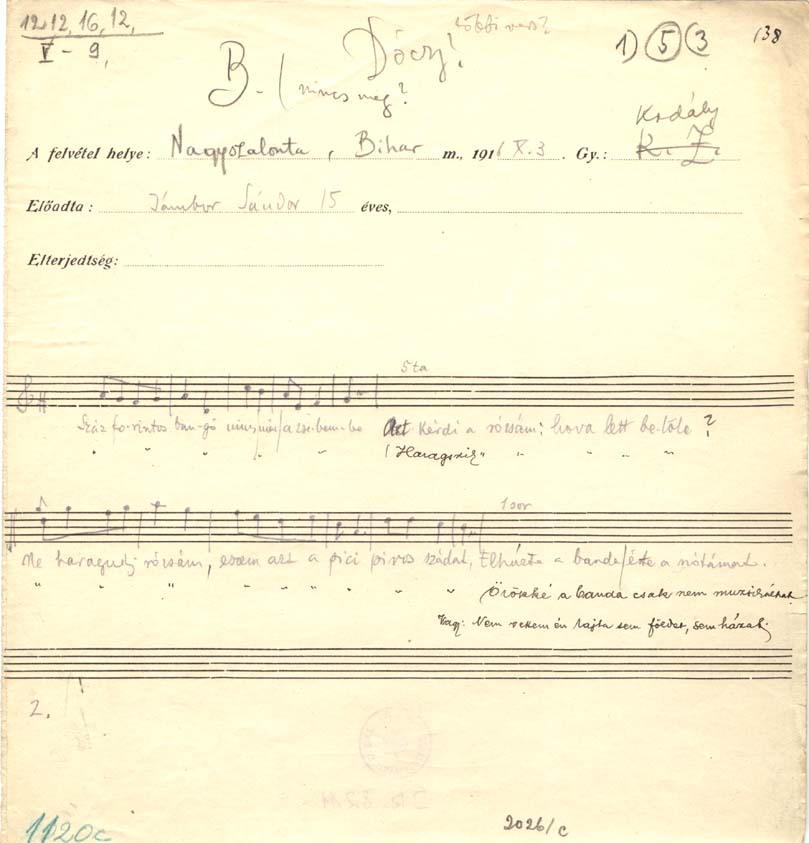 12, 12, 16, 12,
V - 9,
többi vers?
Dóczy!
B - ( nincs meg?
1) 5 3
138
Kodály
A felvétel helye: Nagyszalonta, Bihar m., 1916 X. 3. Gy.: K. Z.
Előadta: Jámbor Sándor 15 éves,
Elterjedtség:
5ta
Száz fo-rintos ban-gó nincs már a zse-bem-be Azt kérdi a rózsám: hova lett be-lőle?
" " " " " (Haragszik " " " " "
1 sor
Ne haragudj rózsám, eszem azt a pici piros szádat, Elhúzta a banda értte a nótámat.
" " " " " " " " Örökké a banda csak nem muzsikálhat
Vagy: Nem veszem én rajta sem földet, sem házat.
2.
1120c
2026/c